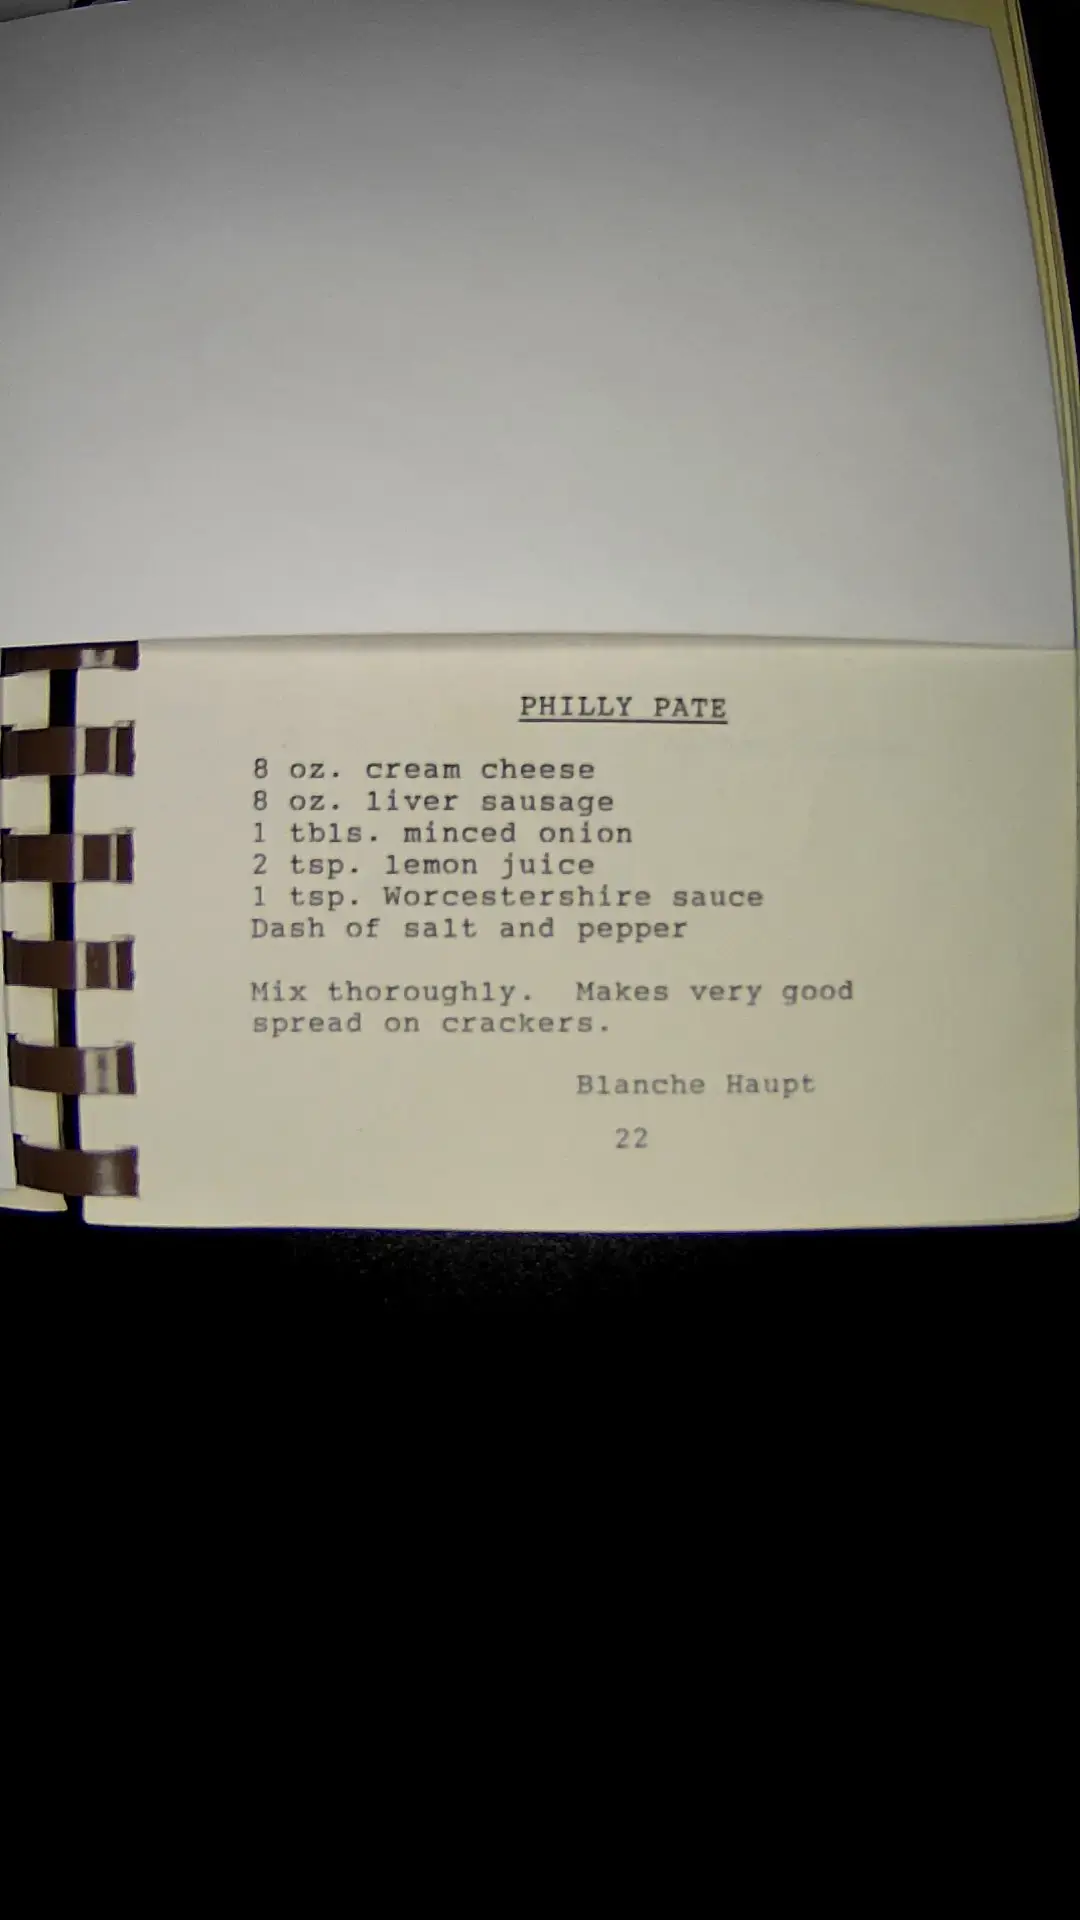 PHILLY PATE
8 oz. cream cheese
8 oz. liver sausage
1 tbls. minced onion
2 tsp. lemon juice
1 tsp. Worcestershire sauce
Dash of salt and pepper
Mix thoroughly.  Makes very good
spread on crackers.
Blanche Haupt
22